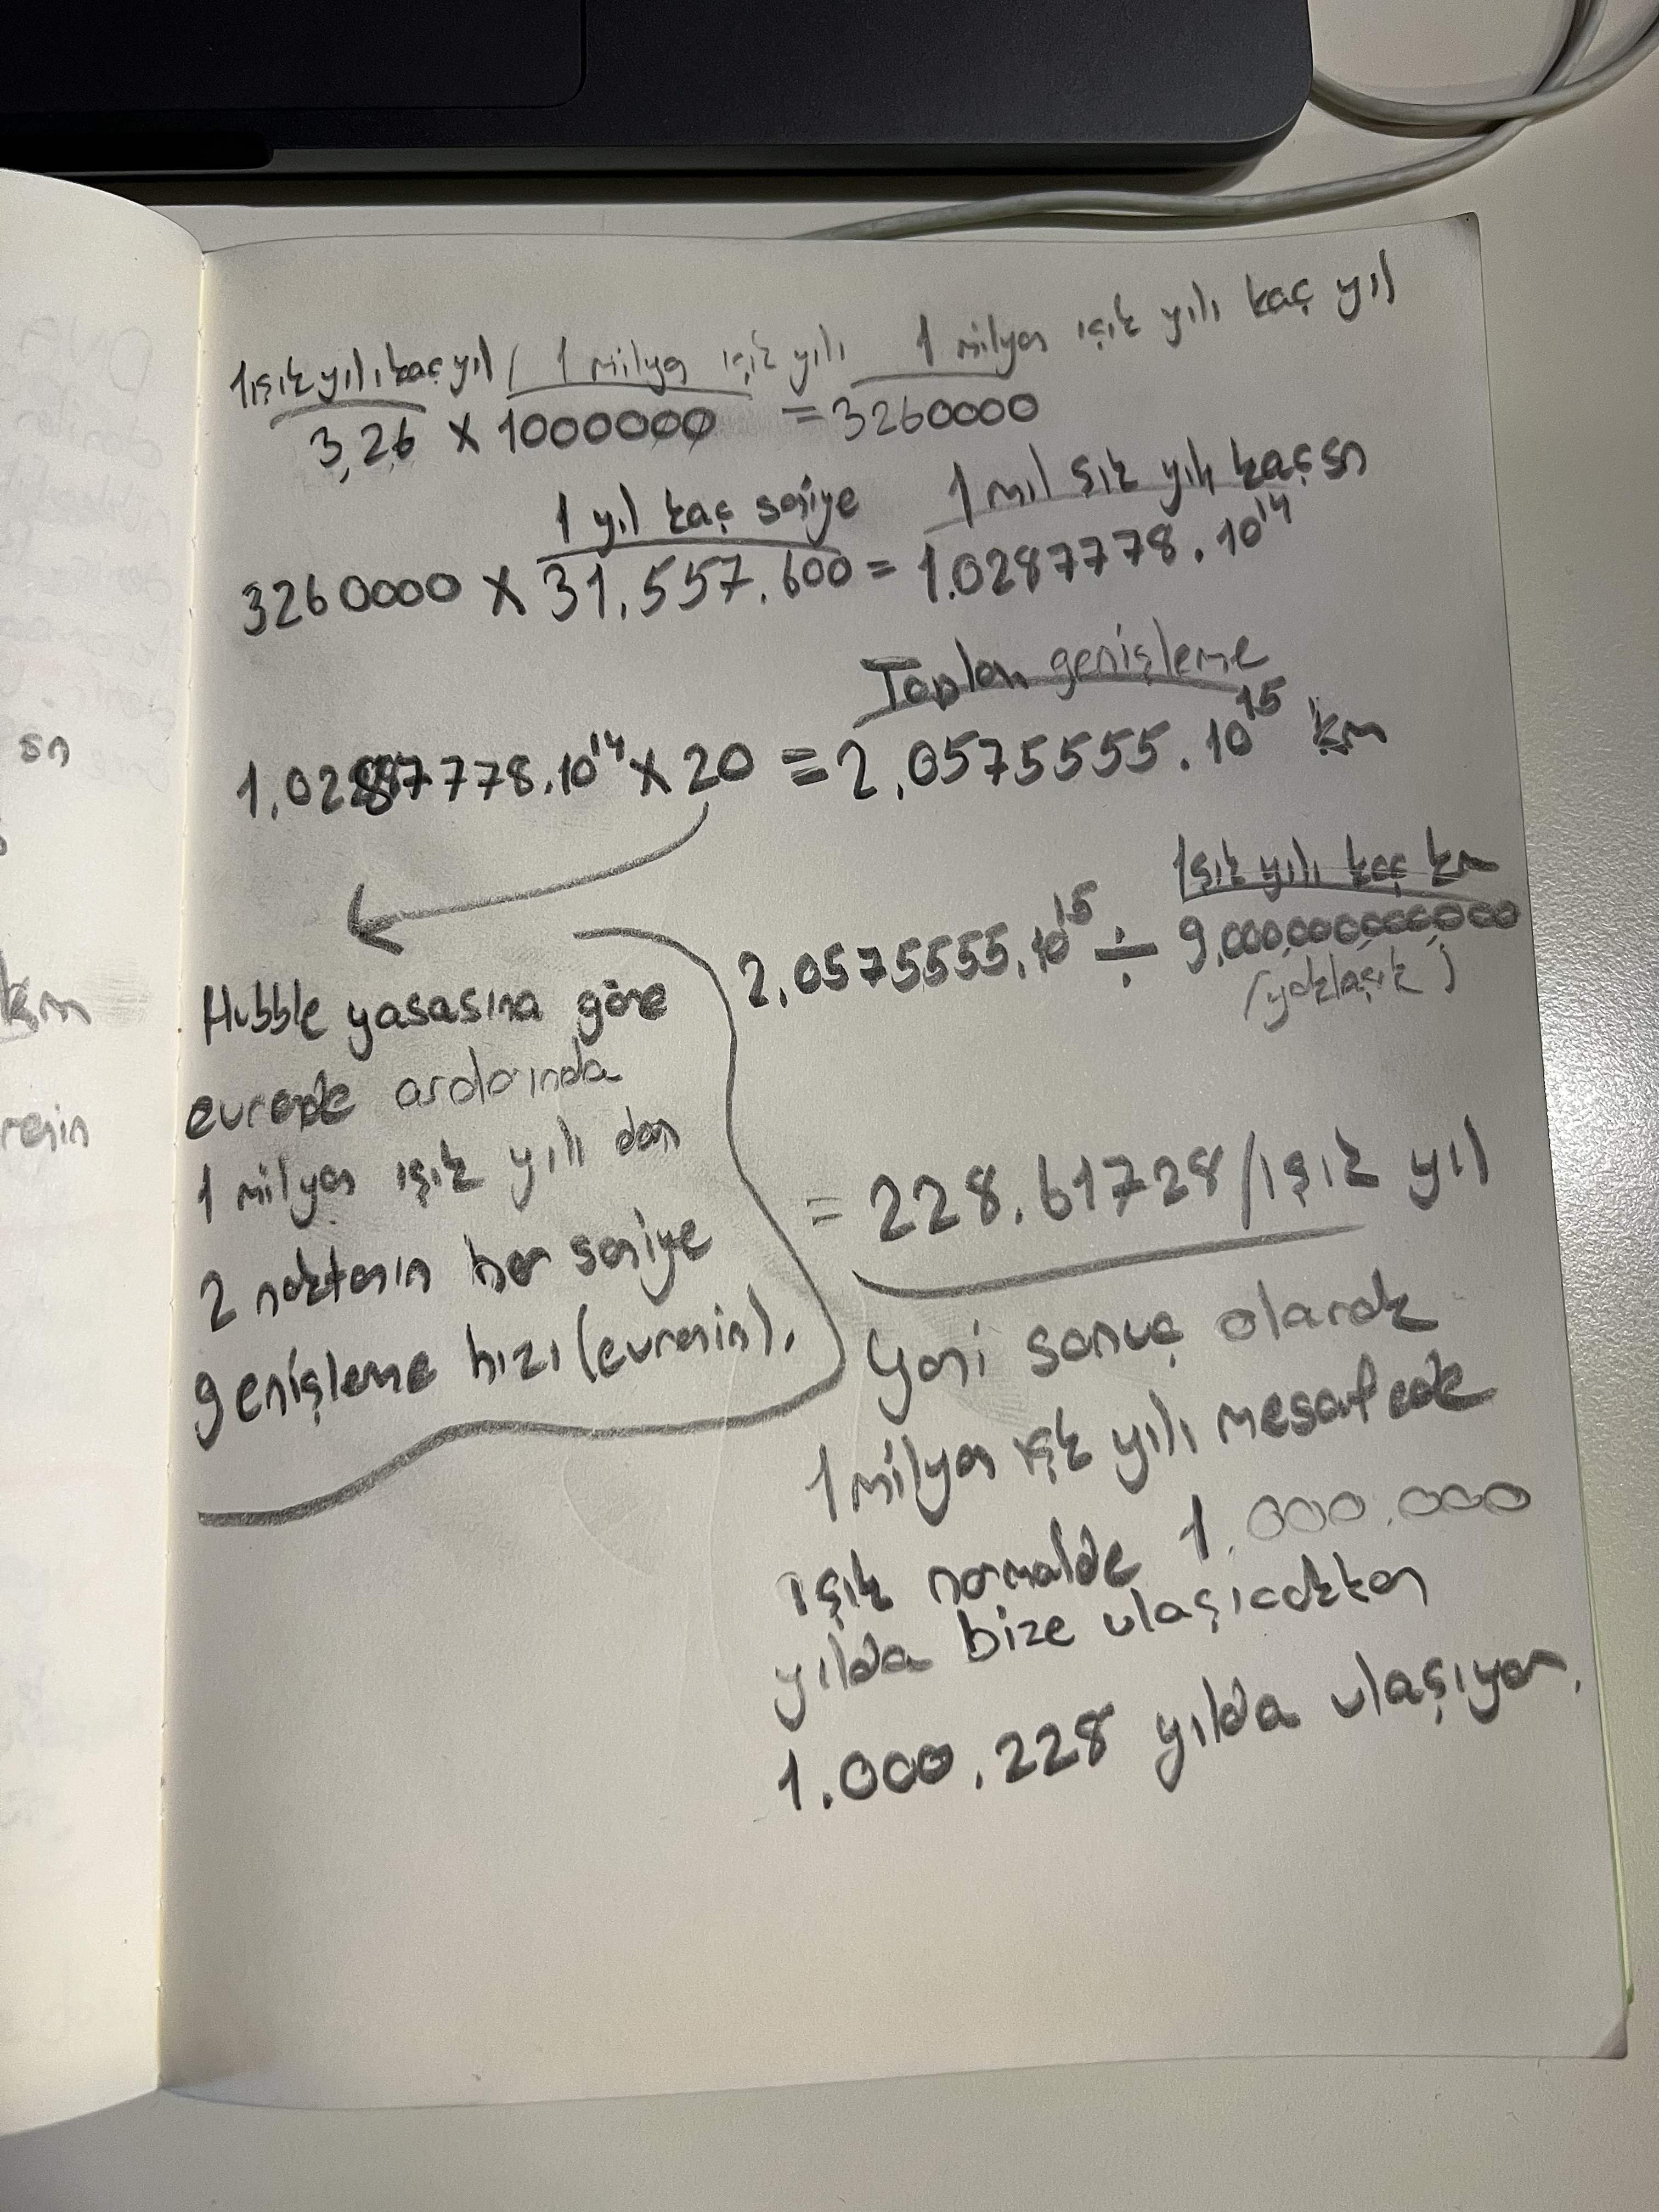 1 ışık yılı kaç yıl / 1 milyon ışık yılı 1 milyon ışık yılı kaç yıl
3,26 x 1000000 = 3260000
1 yıl kaç saniye 1 mıl şık yılı kaç sn
3260000 x 31.557.600 = 1.0287778.10¹⁴
Toplam genişleme
1.02887778.10¹⁴ x 20 = 2.0575555.10¹⁵ km
Işık yılı kaç km
2.0575555.10¹⁵ ÷ 9.000.000.000.000
(yaklaşık)
Hubble yasasına göre
evrende aralarında
1 milyon ışık yılı olan
2 noktanın her saniye
genişleme hızı (evrenin).
= 228.61728 / ışık yıl
Yani sonuç olarak
1 milyon ışık yılı mesafede
ışık normalde 1.000.000
yılda bize ulaşıcakken
1.000.228 yılda ulaşıyor.
sn
km